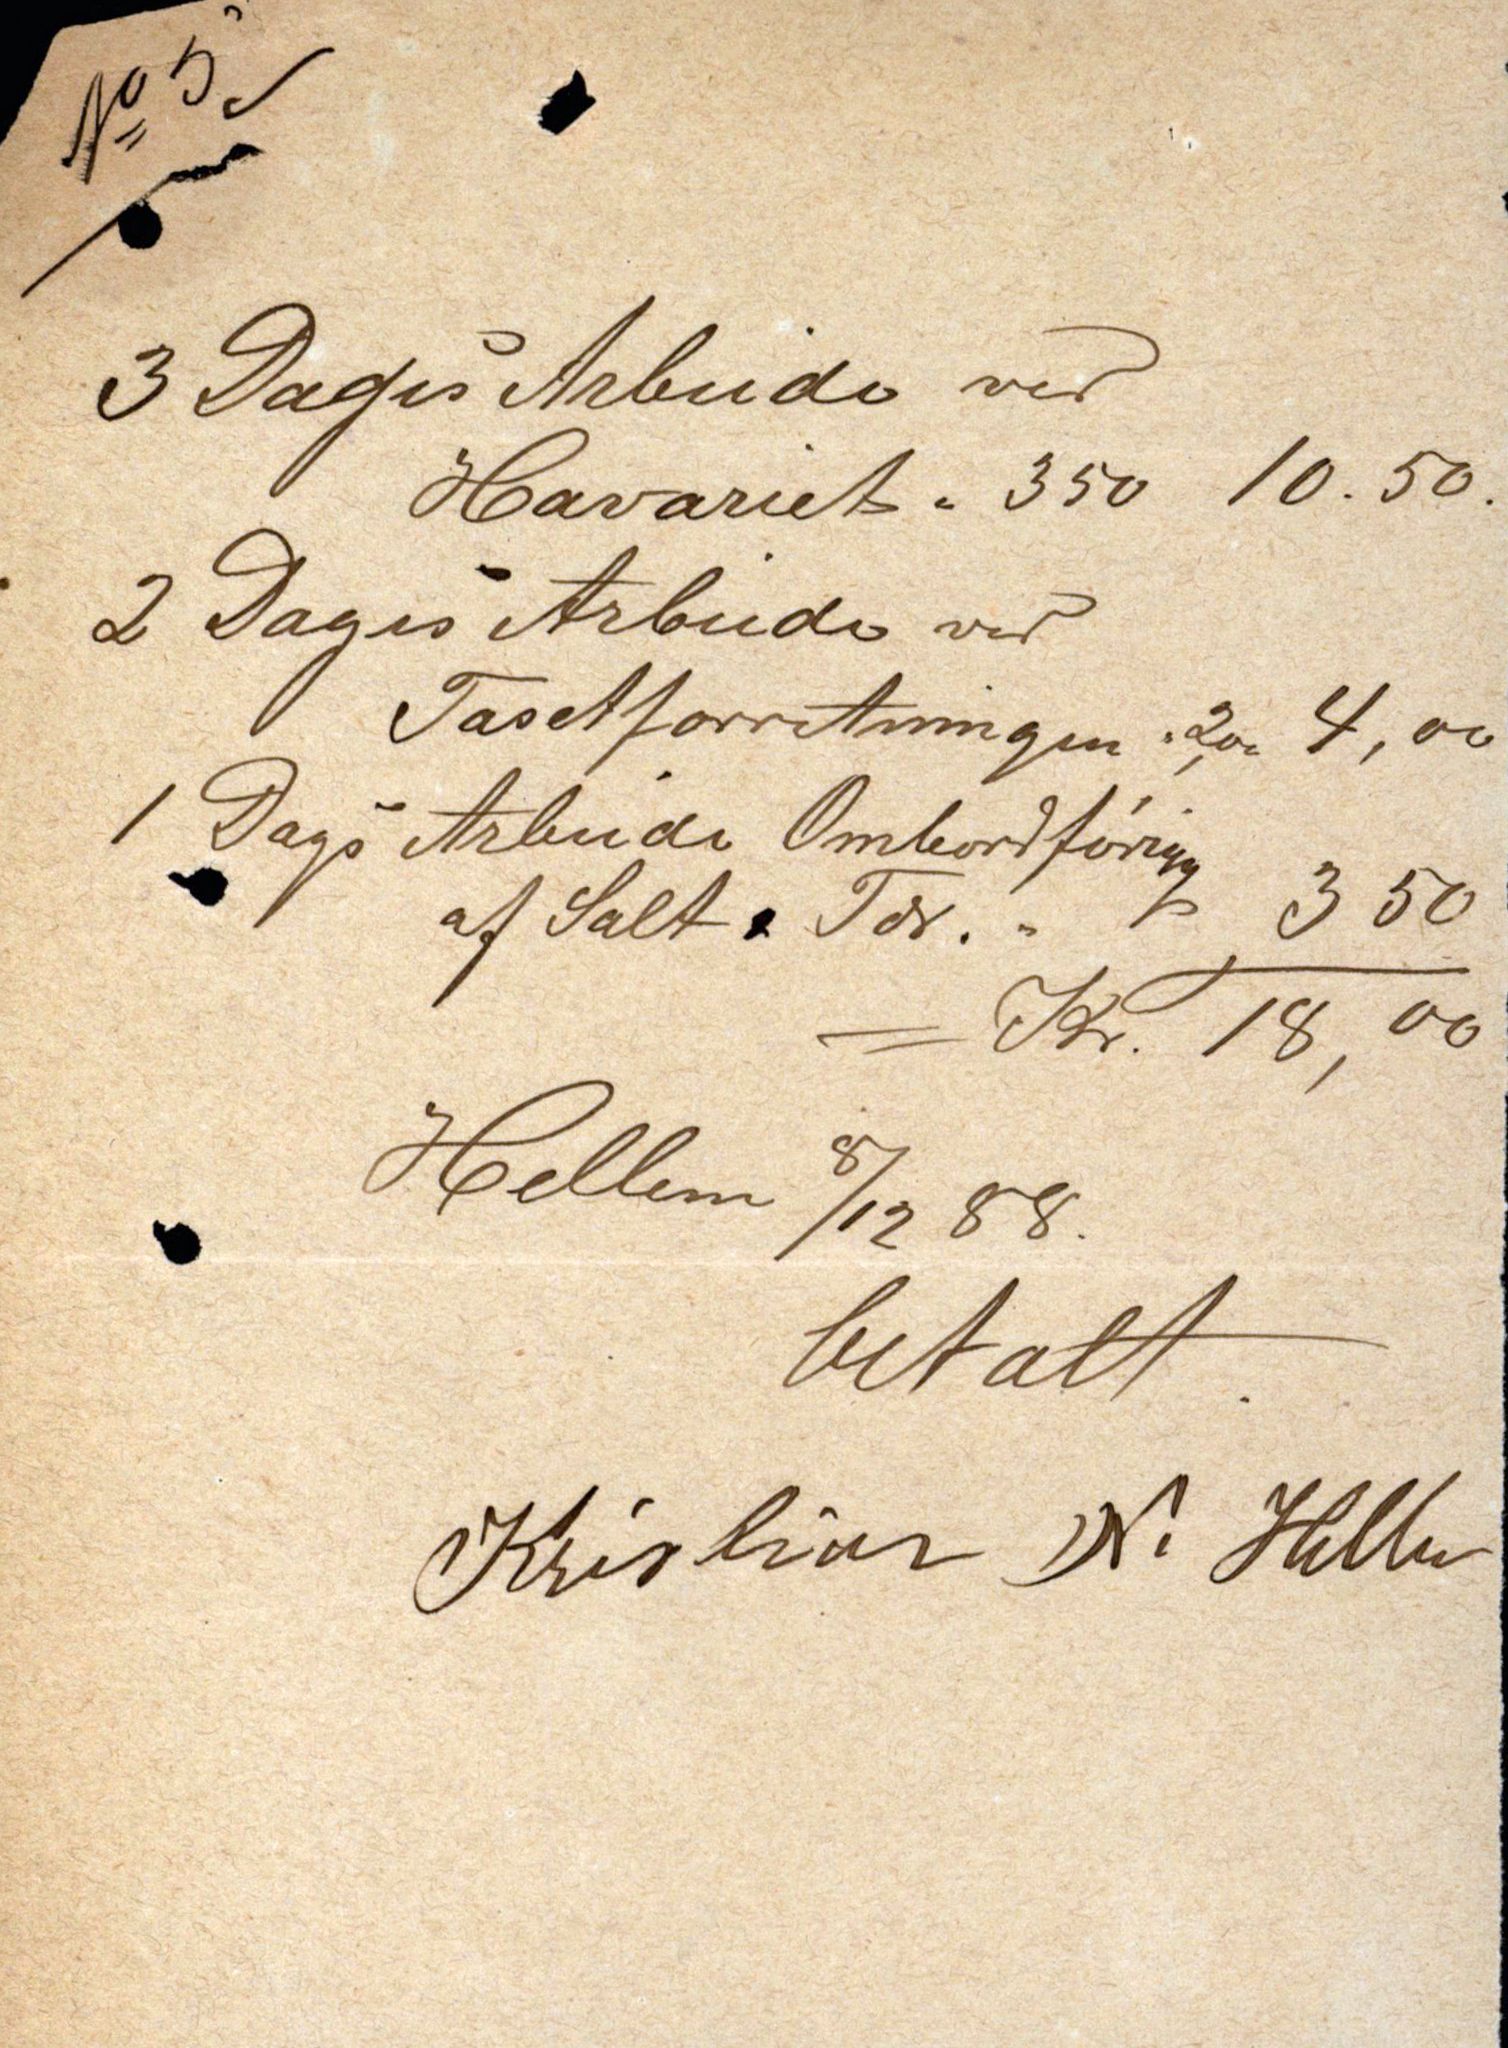 No 5
3 Dages Arbeide ved
Havariet " 350 10.50.
2 Dages Arbeide ved
Taxtforretningen " 2,00 4,00
1 Dags Arbeide Ombordföring
af Salt & Tdr. " " 3 50
= Kr. 18,00
Hellem 8/12 88.
betalt.
Kristian N. Hellem